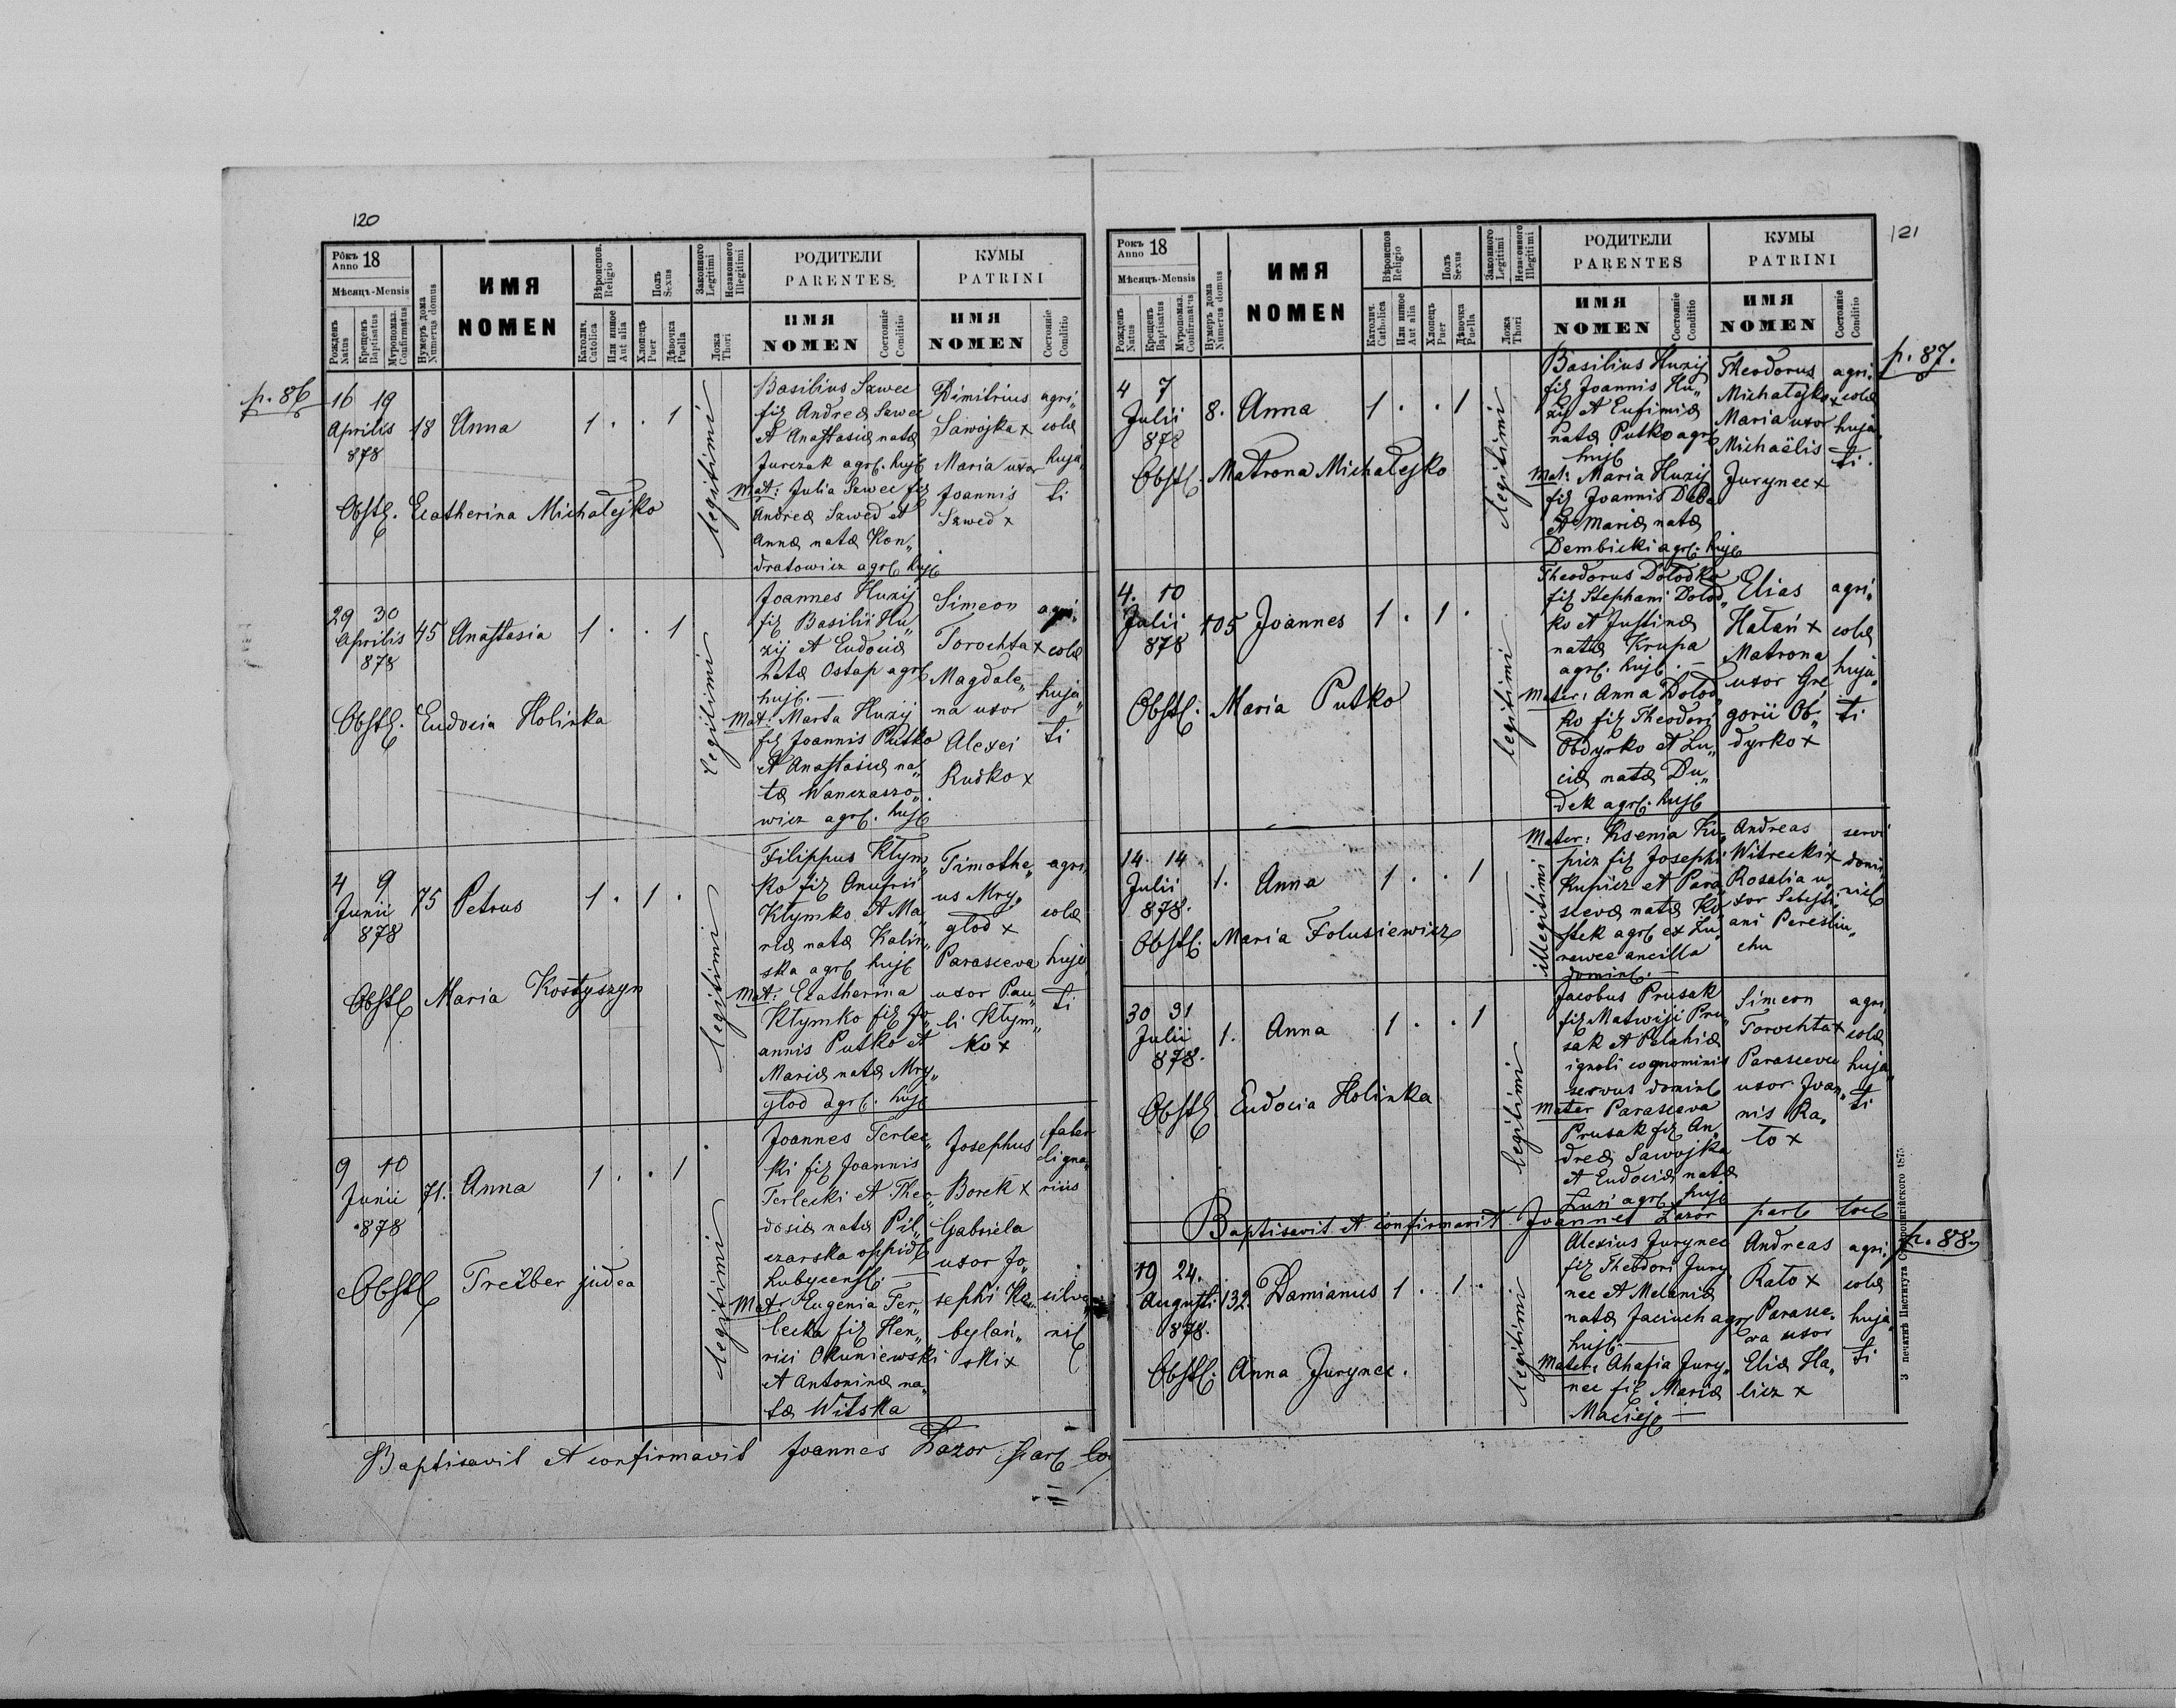 120
p. 86
Рôкъ Anno 18
Мѣсяць-Mensis
Рожденъ Natus
Крещенъ Baptisatus
Муропомаз. Confirmatus
Нумеръ дома Numerus domus
ИМЯ NOMEN
Вѣроиспов. Religio
Католич. Catolica
Или инное Aut alia
Полъ Sexus
Хлопецъ Puer
Дѣвочка Puella
Законного Legitimi
Незаконного Illegitimi
Ложа Thori
РОДИТЕЛИ PARENTES
ИМЯ NOMEN
Состояніе Conditio
КУМЫ PATRINI
ИМЯ NOMEN
Состояніе Conditio
16 19
Aprilis 18 Anna 1 . . 1
878
Obstl. Ecatherina Michałejko
legitimi
Basilius Szwec
fil Andreæ Szwec
et Anastasiæ natæ
Jurczak agrl. hujl
Mat: Julia Szwec fil
Andreæ Szwed et
Annæ natæ Kon„
dratowicz agrl hujl
Dimitrius
Sawojka x
Maria uxor
Joannis
Szwed x
agri„
colæ
huja„
ti
29 30
Aprilis 45 Anastasia 1 . . 1
878
Obstl. Eudocia Holinka
legitimi
Joannes Huzij
fil Basilii Hu„
zij et Eudociæ
natæ Ostap agrl
hujl. —
Mat: Marta Huzij
fil Joannis Putko
et Anastasiæ na„
tæ Wanczasso„
wicz agrl. hujl
Simeon
Torochta x
Magdale„
na uxor
Alexei
Rudko x
agri„
colæ
huja„
ti
4 9
Junii 75 Petrus 1 . 1 .
878
Obstl Maria Kostyszyn
legitimi
Filippus Kłym„
ko fil Anufrii
Kłymko et Ma„
riæ natæ Kalin„
ska agrl hujl
Mat: Ecatherina
Kłymko fil Jo„
annis Putko et
Mariæ natæ Mry„
głod agrl. hujl
Timothe„
us Mry„
głod x
Parasceva
uxor Pau„
li Kłym„
ko x
agri„
colæ
huja„
ti
9 10
Junii 71. Anna 1 . . 1
878
Obstl Treiber judea
legitimi
Joannes Terlec„
ki fil Joannis
Terlecki et Theo„
dosiæ natæ Pil„
czarska oppidl
Lubycensl. —
Mat: Eugenia Ter„
lecka fil Hen„
rici Okuniewski
et Antoninæ na„
tæ Witska
Josephus
Borek x
Gabriela
uxor Jo„
sephi Ka„
bylań„
ski x
faber
ligna„
rius
silva„
nil
Baptisavit et confirmavit Joannes Łazor parl lo
121
p. 87.
Рокъ Anno 18
Мѣсяцъ-Mensis
Рожденъ Natus
Крещенъ Baptisatus
Муропомаз. Confirmatus
Нумеръ дома Numerus domus
ИМЯ NOMEN
Вѣроиспов Religio
Католич. Catholica
Или инное Aut alia
Полъ Sexus
Хлопецъ Puer
Дѣвочка Puella
Законного Legitimi
Незаконного Illegitimi
Ложа Thori
РОДИТЕЛИ PARENTES
ИМЯ NOMEN
Состояніе Conditio
КУМЫ PATRINI
ИМЯ NOMEN
Состояніе Conditio
4 7
Julii 8. Anna 1 . . 1
878
Obstl. Matrona Michałejko
legitimi
Basilius Huzij
fil Joannis Hu„
zij et Eufimiæ
natæ Putko agrl
hujl
Mat: Maria Huzij
fil Joannis Deda
et Mariæ natæ
Dembicki agrl. hujl
Theodorus
Michałejko x
Maria uxor
Michaëlis
Jurynec x
agri„
colæ
huja„
ti.
4. 10
Julii 105 Joannes 1 . 1 .
878
Obstl. Maria Putko
legitimi
Theodorus Dołodko
fil Stephani Dołod„
ko et Justinæ
natæ Krupa
agrl. hujl. —
Mater: Anna Dołod„
ko fil Theodori
Obdyrko et Lu„
ciæ natæ Du„
dek agrl. hujl
Elias
Hałań x
Matrona
uxor Gre„
gorii Ob„
dyrko x
agri„
colæ
huja„
ti
14. 14
Julii 1. Anna 1 . . 1
878.
Obstl. Maria Folusiewicz
illegitimi
Mater: Ksenia Ku„
picz fil Josephi
Kupicz et Para„
scevæ natæ Ko„
stek agrl ex Zu„
rawce ancilla
dominl. —
Andreas
Witrecki x
Rosalia u„
xor Sebesti„
ani Perestiu„
chu
servi
domi„
nicl
30 31
Julii 1. Anna 1 . . 1
878.
Obstl Eudocia Holinka
legitimi
Jacobus Prusak
fil Matwiji Pru„
sak et Pelahiæ
ignoti cognominis
servus dominl
Mater Parasceva
Prusak fil An„
dreæ Sawojka
et Eudociæ natæ
Łuń agrl hujl
Simeon
Torochta x
Parasceva
uxor Joan„
nis Ra„
to x
agri„
colæ
huja„
ti
Baptisavit et confirmavit Joannes Łazor parl locl
p. 88.
19 24.
Augusti 132. Damianus 1 . 1 .
878.
Obstl. Anna Jurynec.
legitimi
Alexius Jurynec
fil Theodori Jury„
nec et Melaniæ
natæ Jaciuch agrl
hujl. —
Mater: Ahafia Jury„
nec fil Mariæ
Maciejo —
Andreas
Rato x
Parasce„
va uxor
Eliæ Ha„
licz x
agri„
colæ
huja„
ti
З печатнѣ Института Ставропигійского 1875.